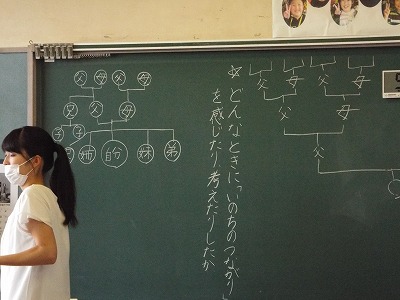 父 母 父 母
父 母
子
子
姉 自分 妹 弟
☆どんなときに「いのちのつながり」
を感じたり考えたりしたか
父 母
父 母
父